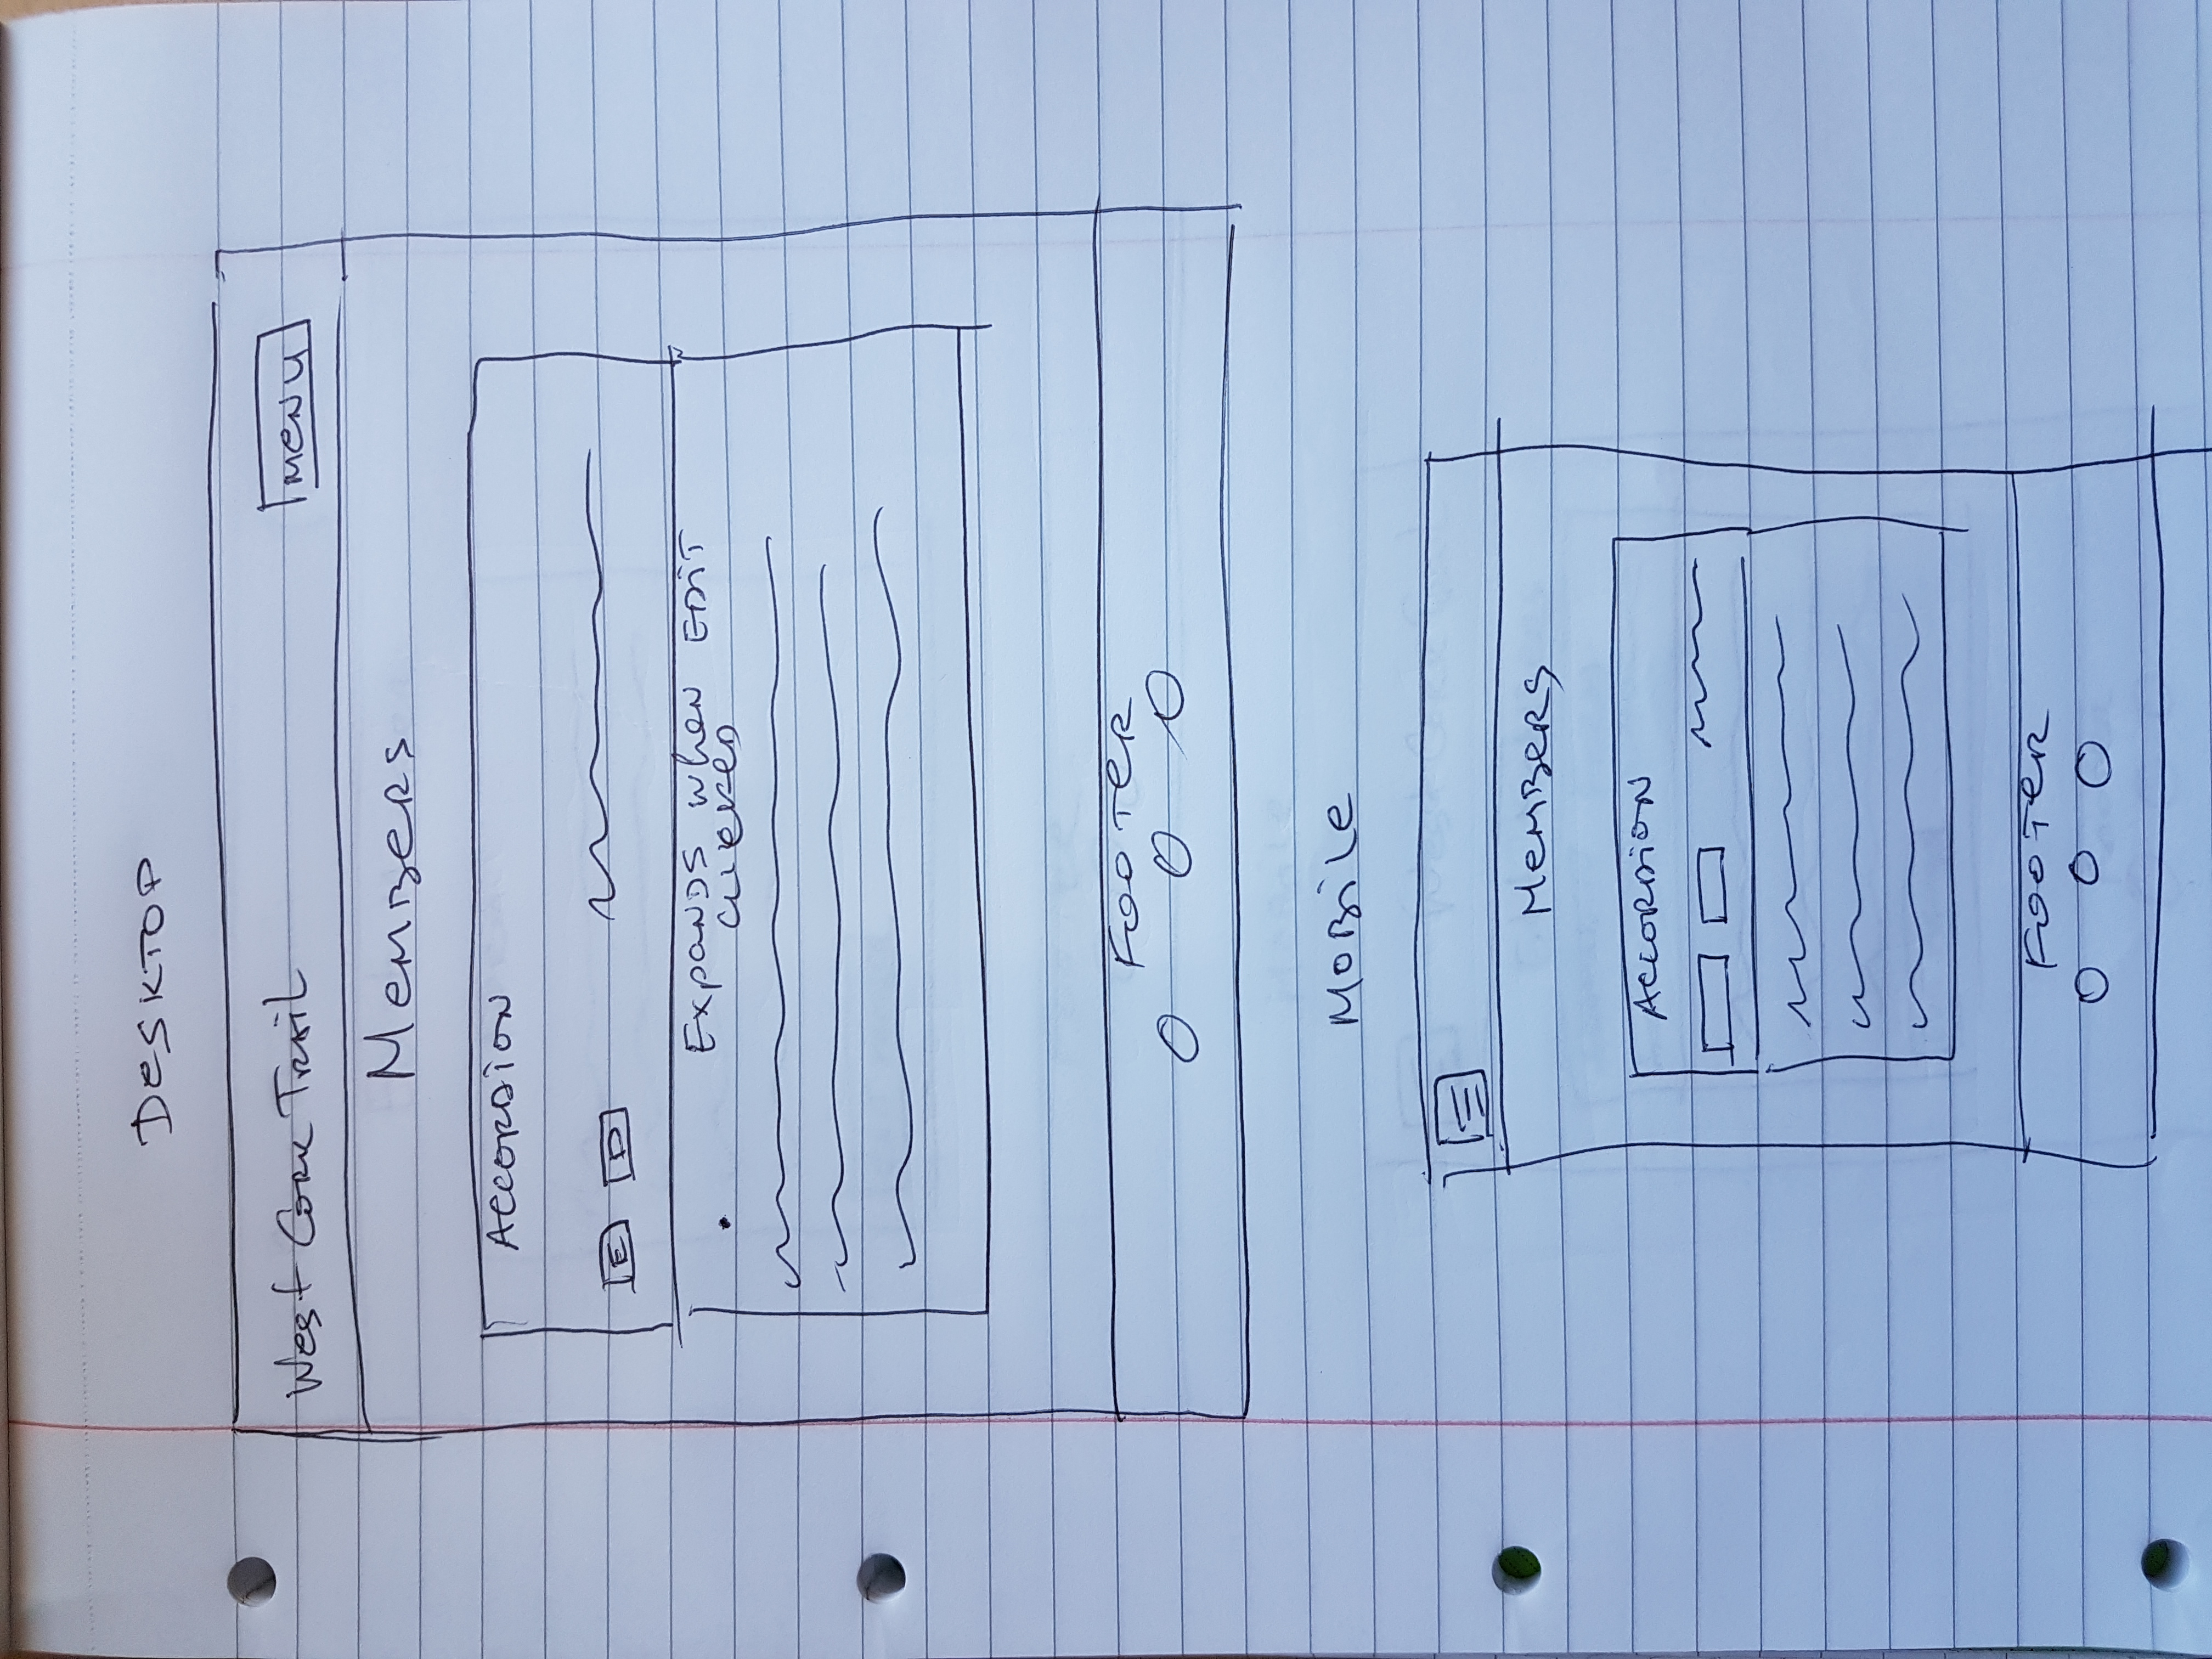 DESKTOP
West Cork Trail
MENU
MEMBERS
ACCORDION
E D
EXPANDS WHEN EDIT
CLICKED
FOOTER
MOBILE
MEMBERS
ACCORDION
FOOTER